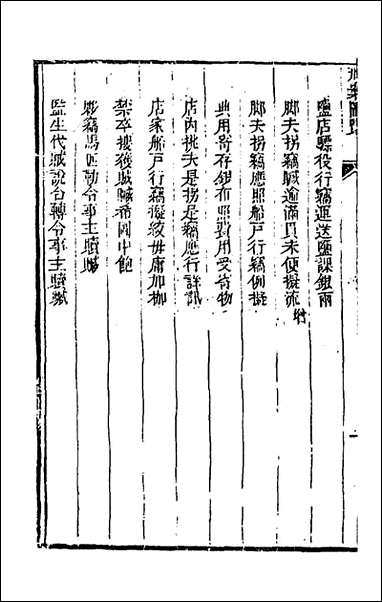 鹽店雇役行竊運送鹽課銀兩
脚夫拐竊贓逾滿貫未便擬流 增
脚夫拐竊應照船戶行竊例擬
典用寄存銀布照費用受寄物
店內挑夫是拐是竊應行詳訊
店家船戶行竊擬絞毋庸加枷
禁卒摟獲贓贓希圖中飽
夥竊馬匹勒令事主贖贓
監生代賊說合轉令事主贖贓